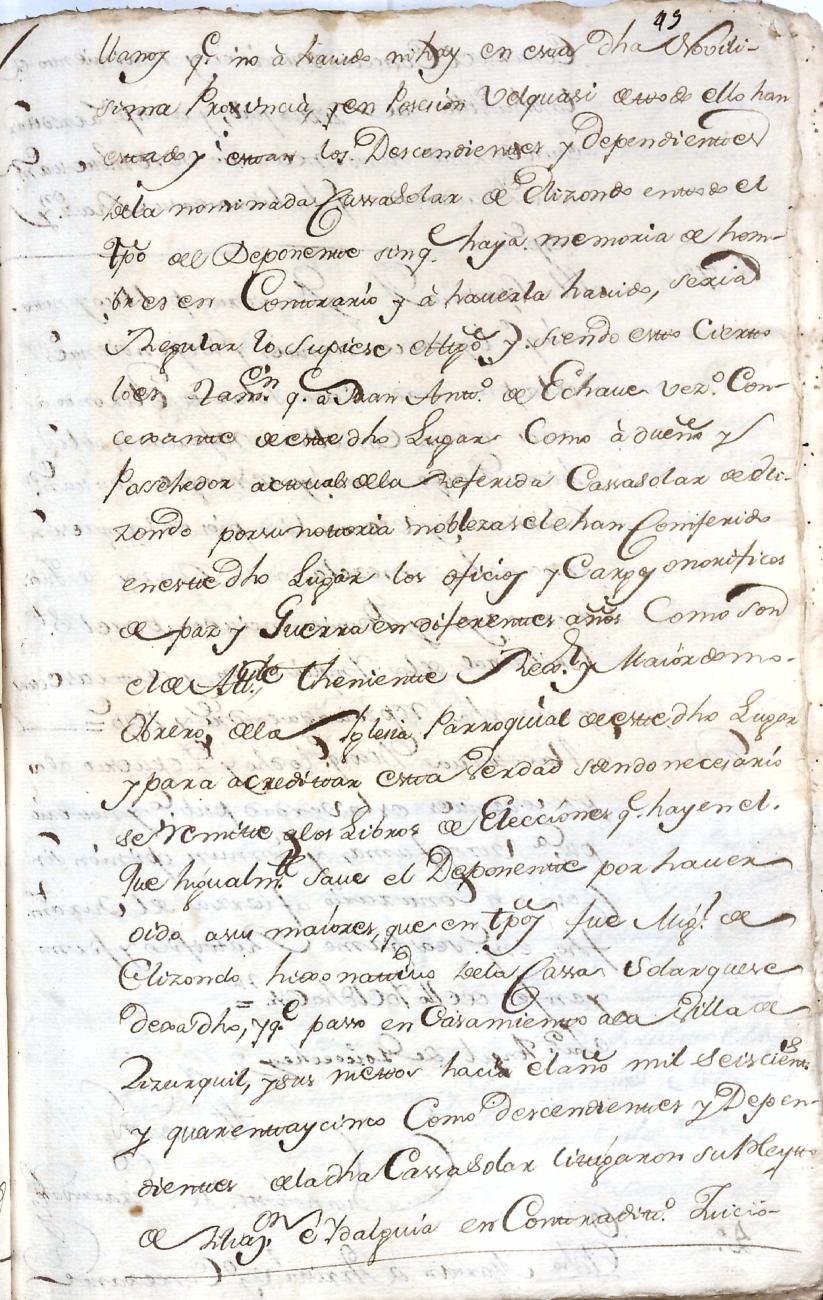 49
llanos q.e no à havido ni hay en esta dha Novili-
sima Provincia, y en Poscion Velquasi de todo ello han
estado y estan los Descendientes y Dependientes
dela nominada Cassa Solar de Elizondo en todo el
tpõ del Deponente sinq.e haya memoria de hom-
bres en Contrario y à haverla havido, seria
Regular lo supiese el tgõ. Y siendo esto Cierto
lo es Tam.en q.e a Juan Ant.o de Echave vez.o Con-
cexante de este dho Lugar Como à dueño y
Posehedor actual dela Referida Cassa Solar de Eli-
zondo por su notoria nobleza sele han Comferido
en este dho Lugar los oficios y Cargos onorificos
de paz y Guerra en diferentes años Como son
el de Alc.de Theniente Rexor. y Maiordomo-
Obrero, dela Yglesia Parroquial de este dho Lugar
y para acreditar esta Verdad siendo necesario
se remite alos Libros de Elecciones q.e hay en el.
Que higualm.te save el Deponente por haver
oido a sus maiores, que en tpõs fue Mig.l de
Elizondo hixo nativo dela Cassa Solar quese
dexa dho, = y q.e passo en Casamiento ala Villa de
Zizurquil, y sus nietos hacia el año mil seiscien.s
y quarenta y cinco Como descendientes y Depen-
dientes dela dha Cassa Solar litigaron su Pleyto
de Filiaz.on è Ydalguia en Contradit.o Juicio-